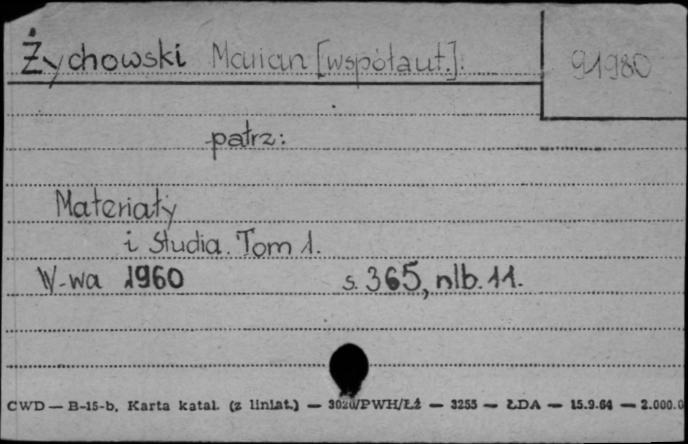 Żychowski Marian [współaut.]:
91980
patrz:
Materiały
i Studia. Tom 1.
W-wa 1960 s. 365, nlb. 11.
CWD — B-15-b. Karta katal. (z liniat.) — 3020/PWH/ŁŹ — 3255 — ŁDA — 15.9.64 — 2.000.0